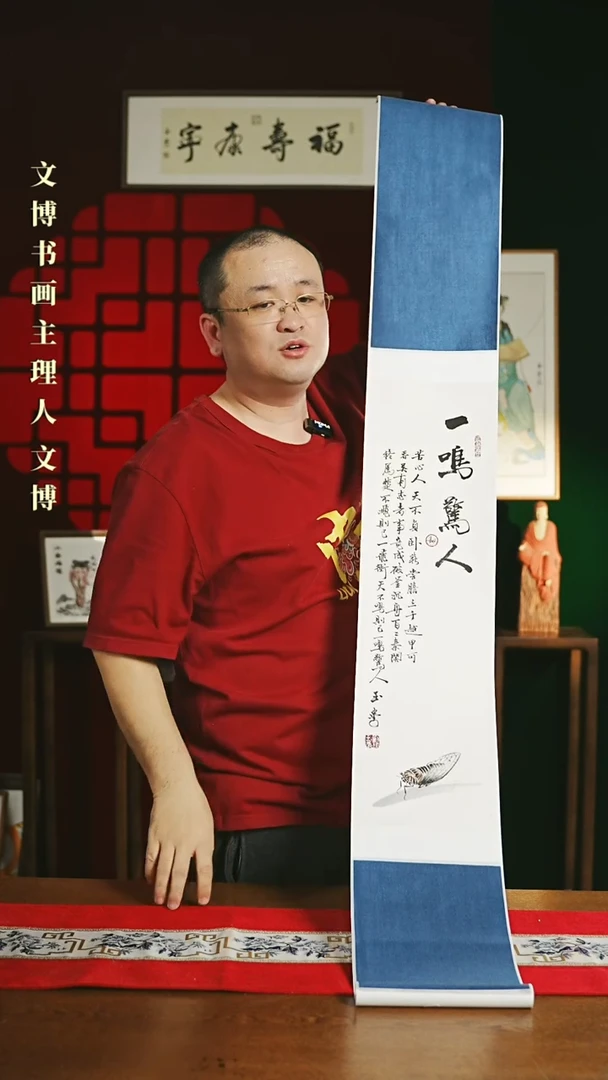 福壽康寧
文博书画主理人文博
一鳴驚人
苦心人天不負卧薪嘗膽三千越甲可
吞吴有志者事竟成破釜沉舟百二秦關
終屬楚不飛則已一飛衝天不鳴則已一鳴驚人